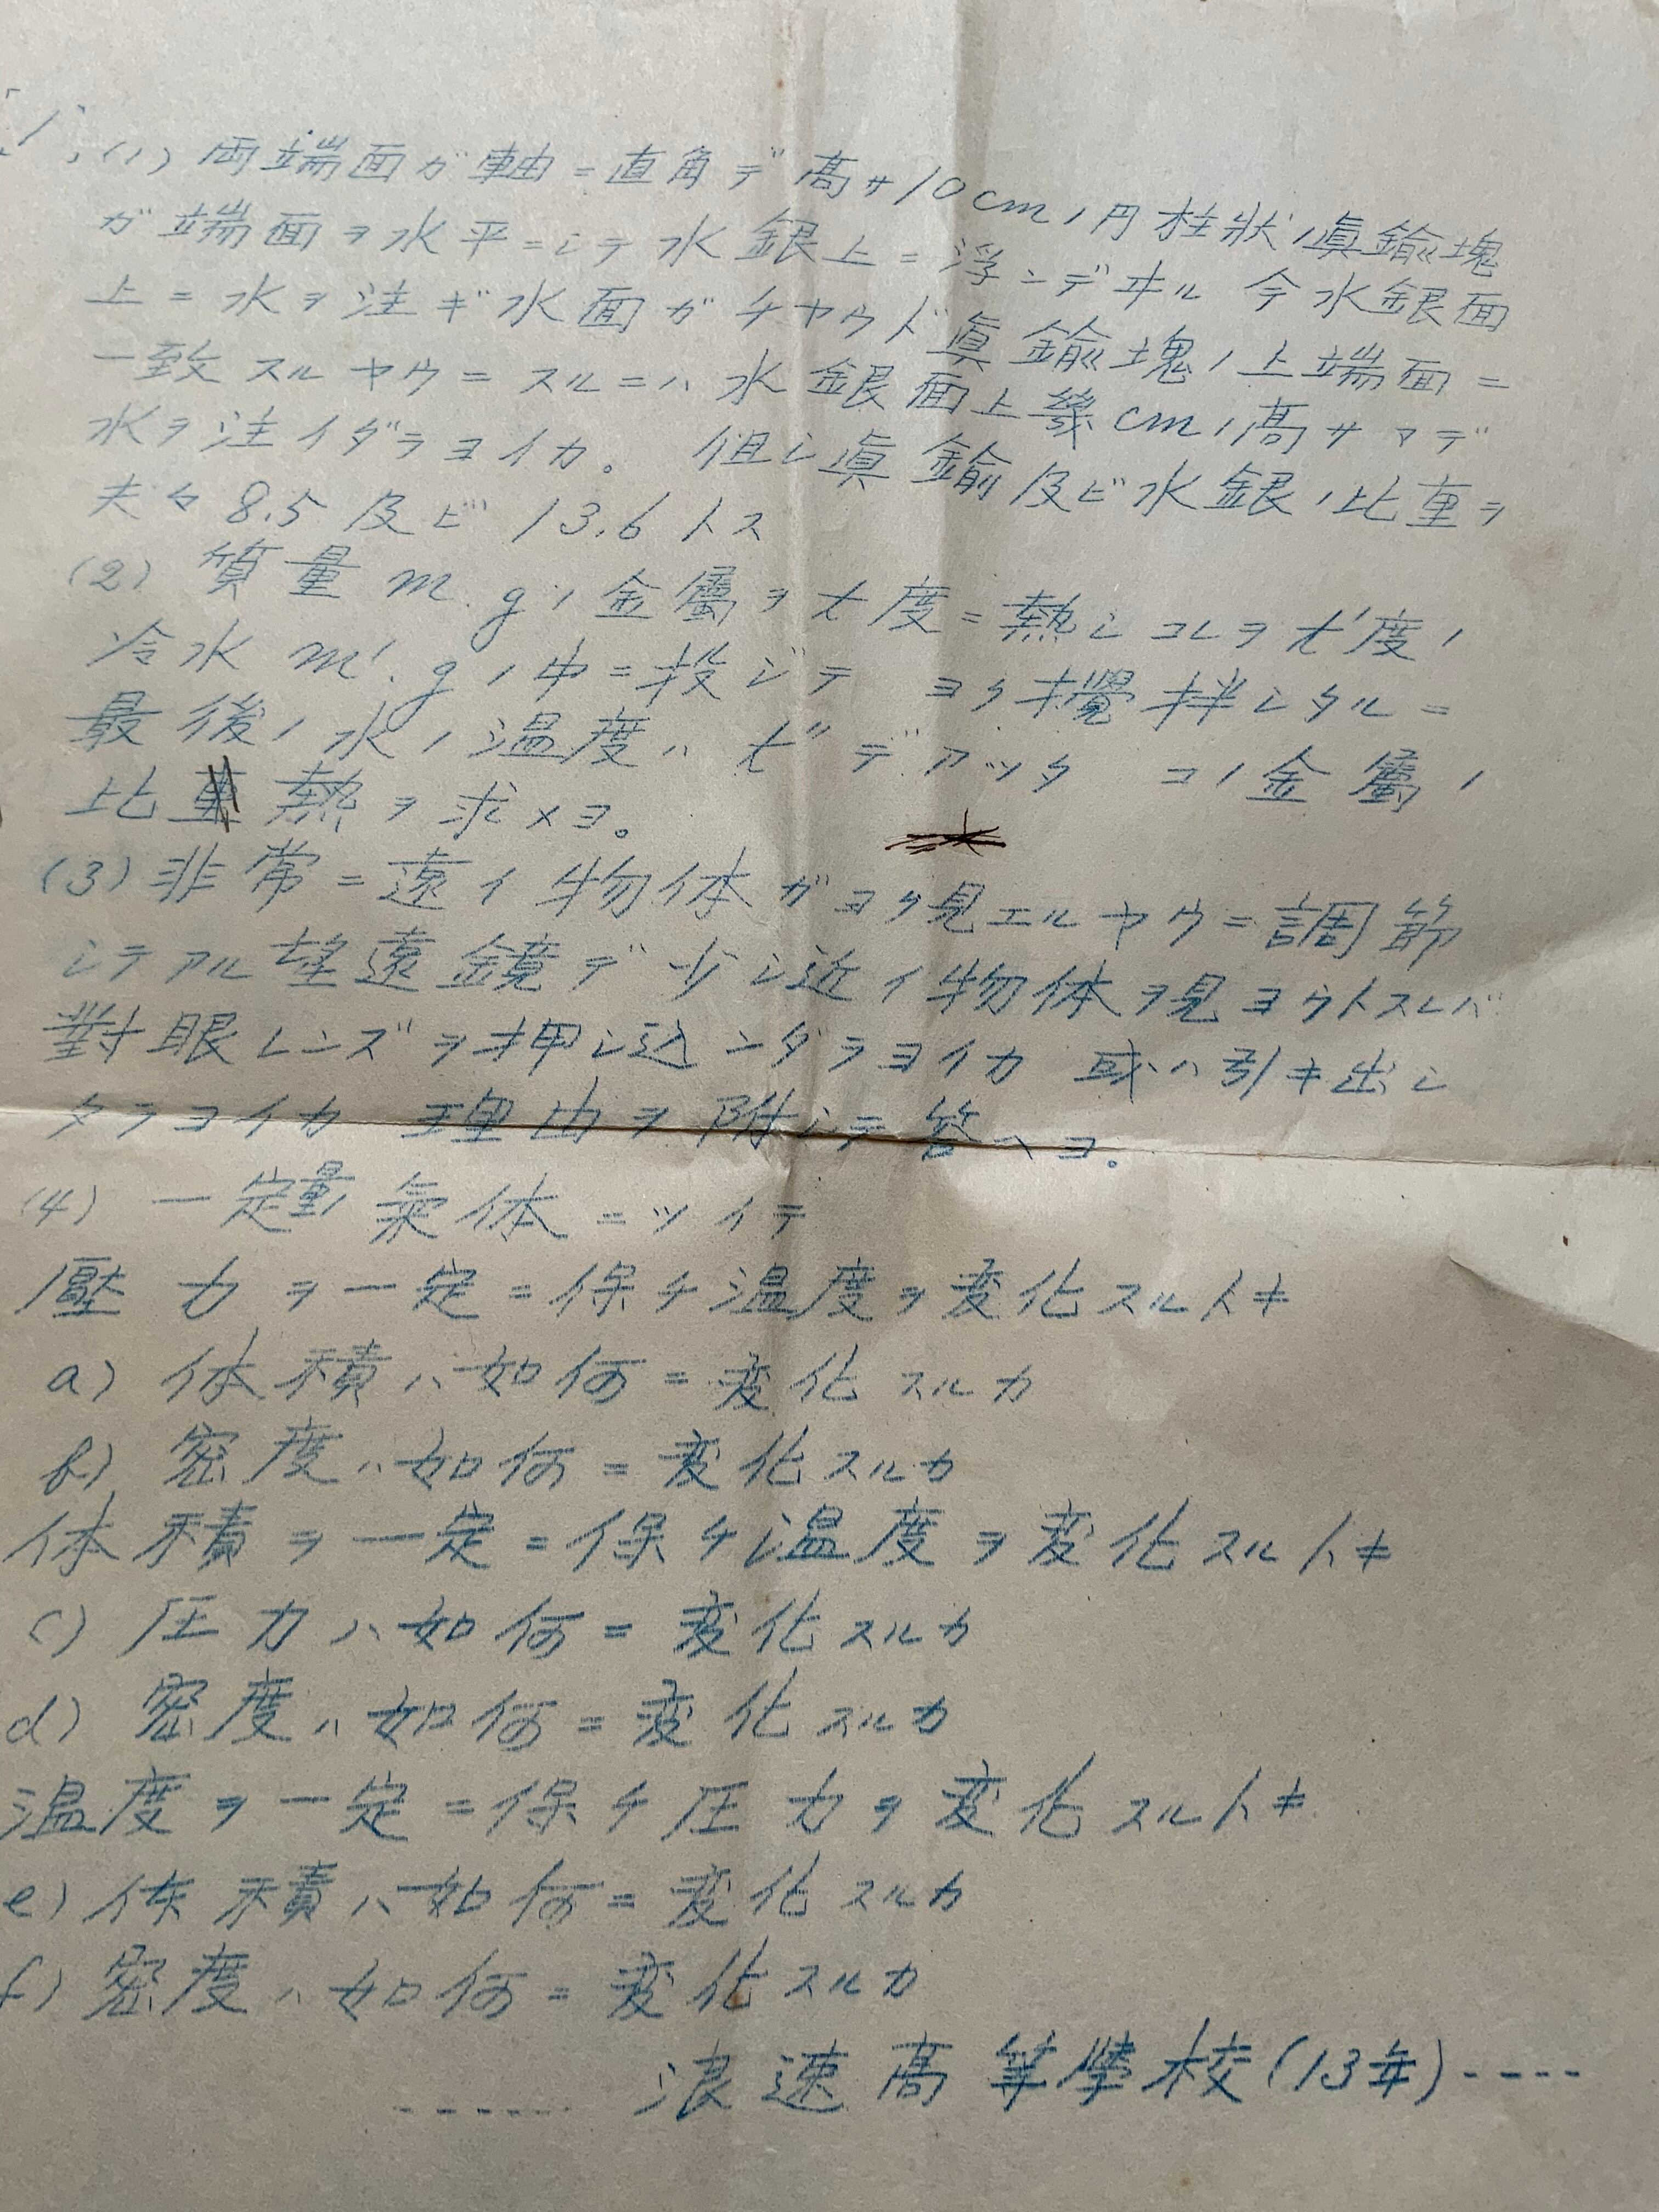 1. (1) 両端面ガ軸ニ直角デ高サ10cmノ円柱狀ノ眞鍮塊
ガ端面ヲ水平ニシテ水銀上ニ浮ンデヰル 今水銀面
上ニ水ヲ注ギ水面ガチヤウド眞鍮塊ノ上端面ニ
一致スルヤウニスルニハ水銀面上幾cmノ高サマデ
水ヲ注イダラヨイカ。 但シ眞鍮及ビ水銀ノ比重ヲ
夫々8.5及ビ13.6トス
(2) 質量m.gノ金屬ヲt度ニ熱シコレヲt'度ノ
冷水m'.gノ中ニ投ジテ ヨク攪拌シタルニ
最後ノ水ノ温度ハt"デアツタ コノ金屬ノ
比熱ヲ求メヨ。
(3) 非常ニ遠イ物体ガヨク見エルヤウニ調節
シテアル望遠鏡デ少シ近イ物体ヲ見ヨウトスレバ
對眼レンズヲ押シ込ンダラヨイカ 或ハ引キ出シ
タラヨイカ 理由ヲ附シテ答ヘヨ。
(4) 一定量ノ氣体ニツイテ
壓力ヲ一定ニ保チ温度ヲ変化スルトキ
a) 体積ハ如何ニ変化スルカ
b) 密度ハ如何ニ変化スルカ
体積ヲ一定ニ保チ温度ヲ変化スルトキ
c) 圧力ハ如何ニ変化スルカ
d) 密度ハ如何ニ変化スルカ
温度ヲ一定ニ保チ圧力ヲ変化スルトキ
e) 体積ハ如何ニ変化スルカ
f) 密度ハ如何ニ変化スルカ
------ 浪速高等學校(13年)----